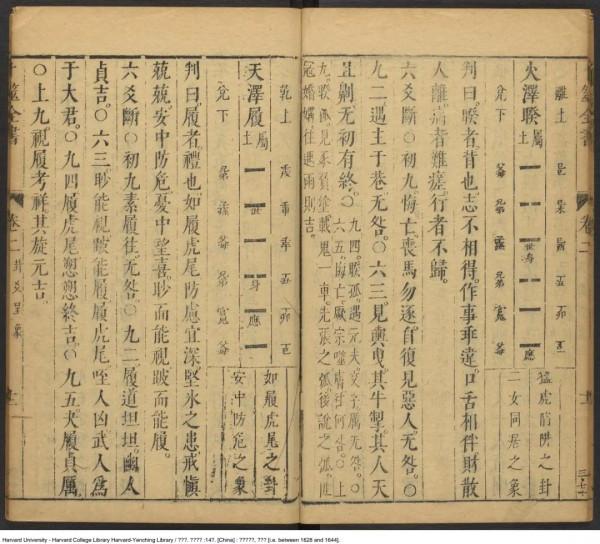 火澤睽 屬土
離上
兌下
世身
應
猛虎陷阱之卦
二女同居之象
判曰睽者背也志不相得作事乖違口舌相伴財散
人離病者難瘥行者不歸
六爻斷〇初九悔亡喪馬勿逐自復見惡人无咎〇
九二遇主于巷无咎〇六三見輿曳其牛掣其人天
且劓无初有終〇九四睽孤遇元夫交孚厲无咎〇
六五悔亡厥宗噬膚往何咎〇上
九睽孤見豕負塗載鬼一車先張之弧後說之弧匪
寇婚媾往遇雨則吉
卷二
天澤履 屬土
乾上
兌下
世
身
應
如履虎尾之卦
安中防危之象
判曰履者禮也如履虎尾防慮宜深堅冰之患戒愼
兢兢安中防危憂中望喜眇而能視跛而能履
六爻斷〇初九素履往无咎〇九二履道坦坦幽人
貞吉〇六三眇能視跛能履履虎尾咥人凶武人爲
于大君〇九四履虎尾愬愬終吉〇九五夬履貞厲
〇上九視履考祥其旋元吉
筮全書
卷二
Harvard University - Harvard College Library Harvard-Yenching Library / ???. ???? :147. [China] : ?????, ??? [i.e. between 1628 and 1644].